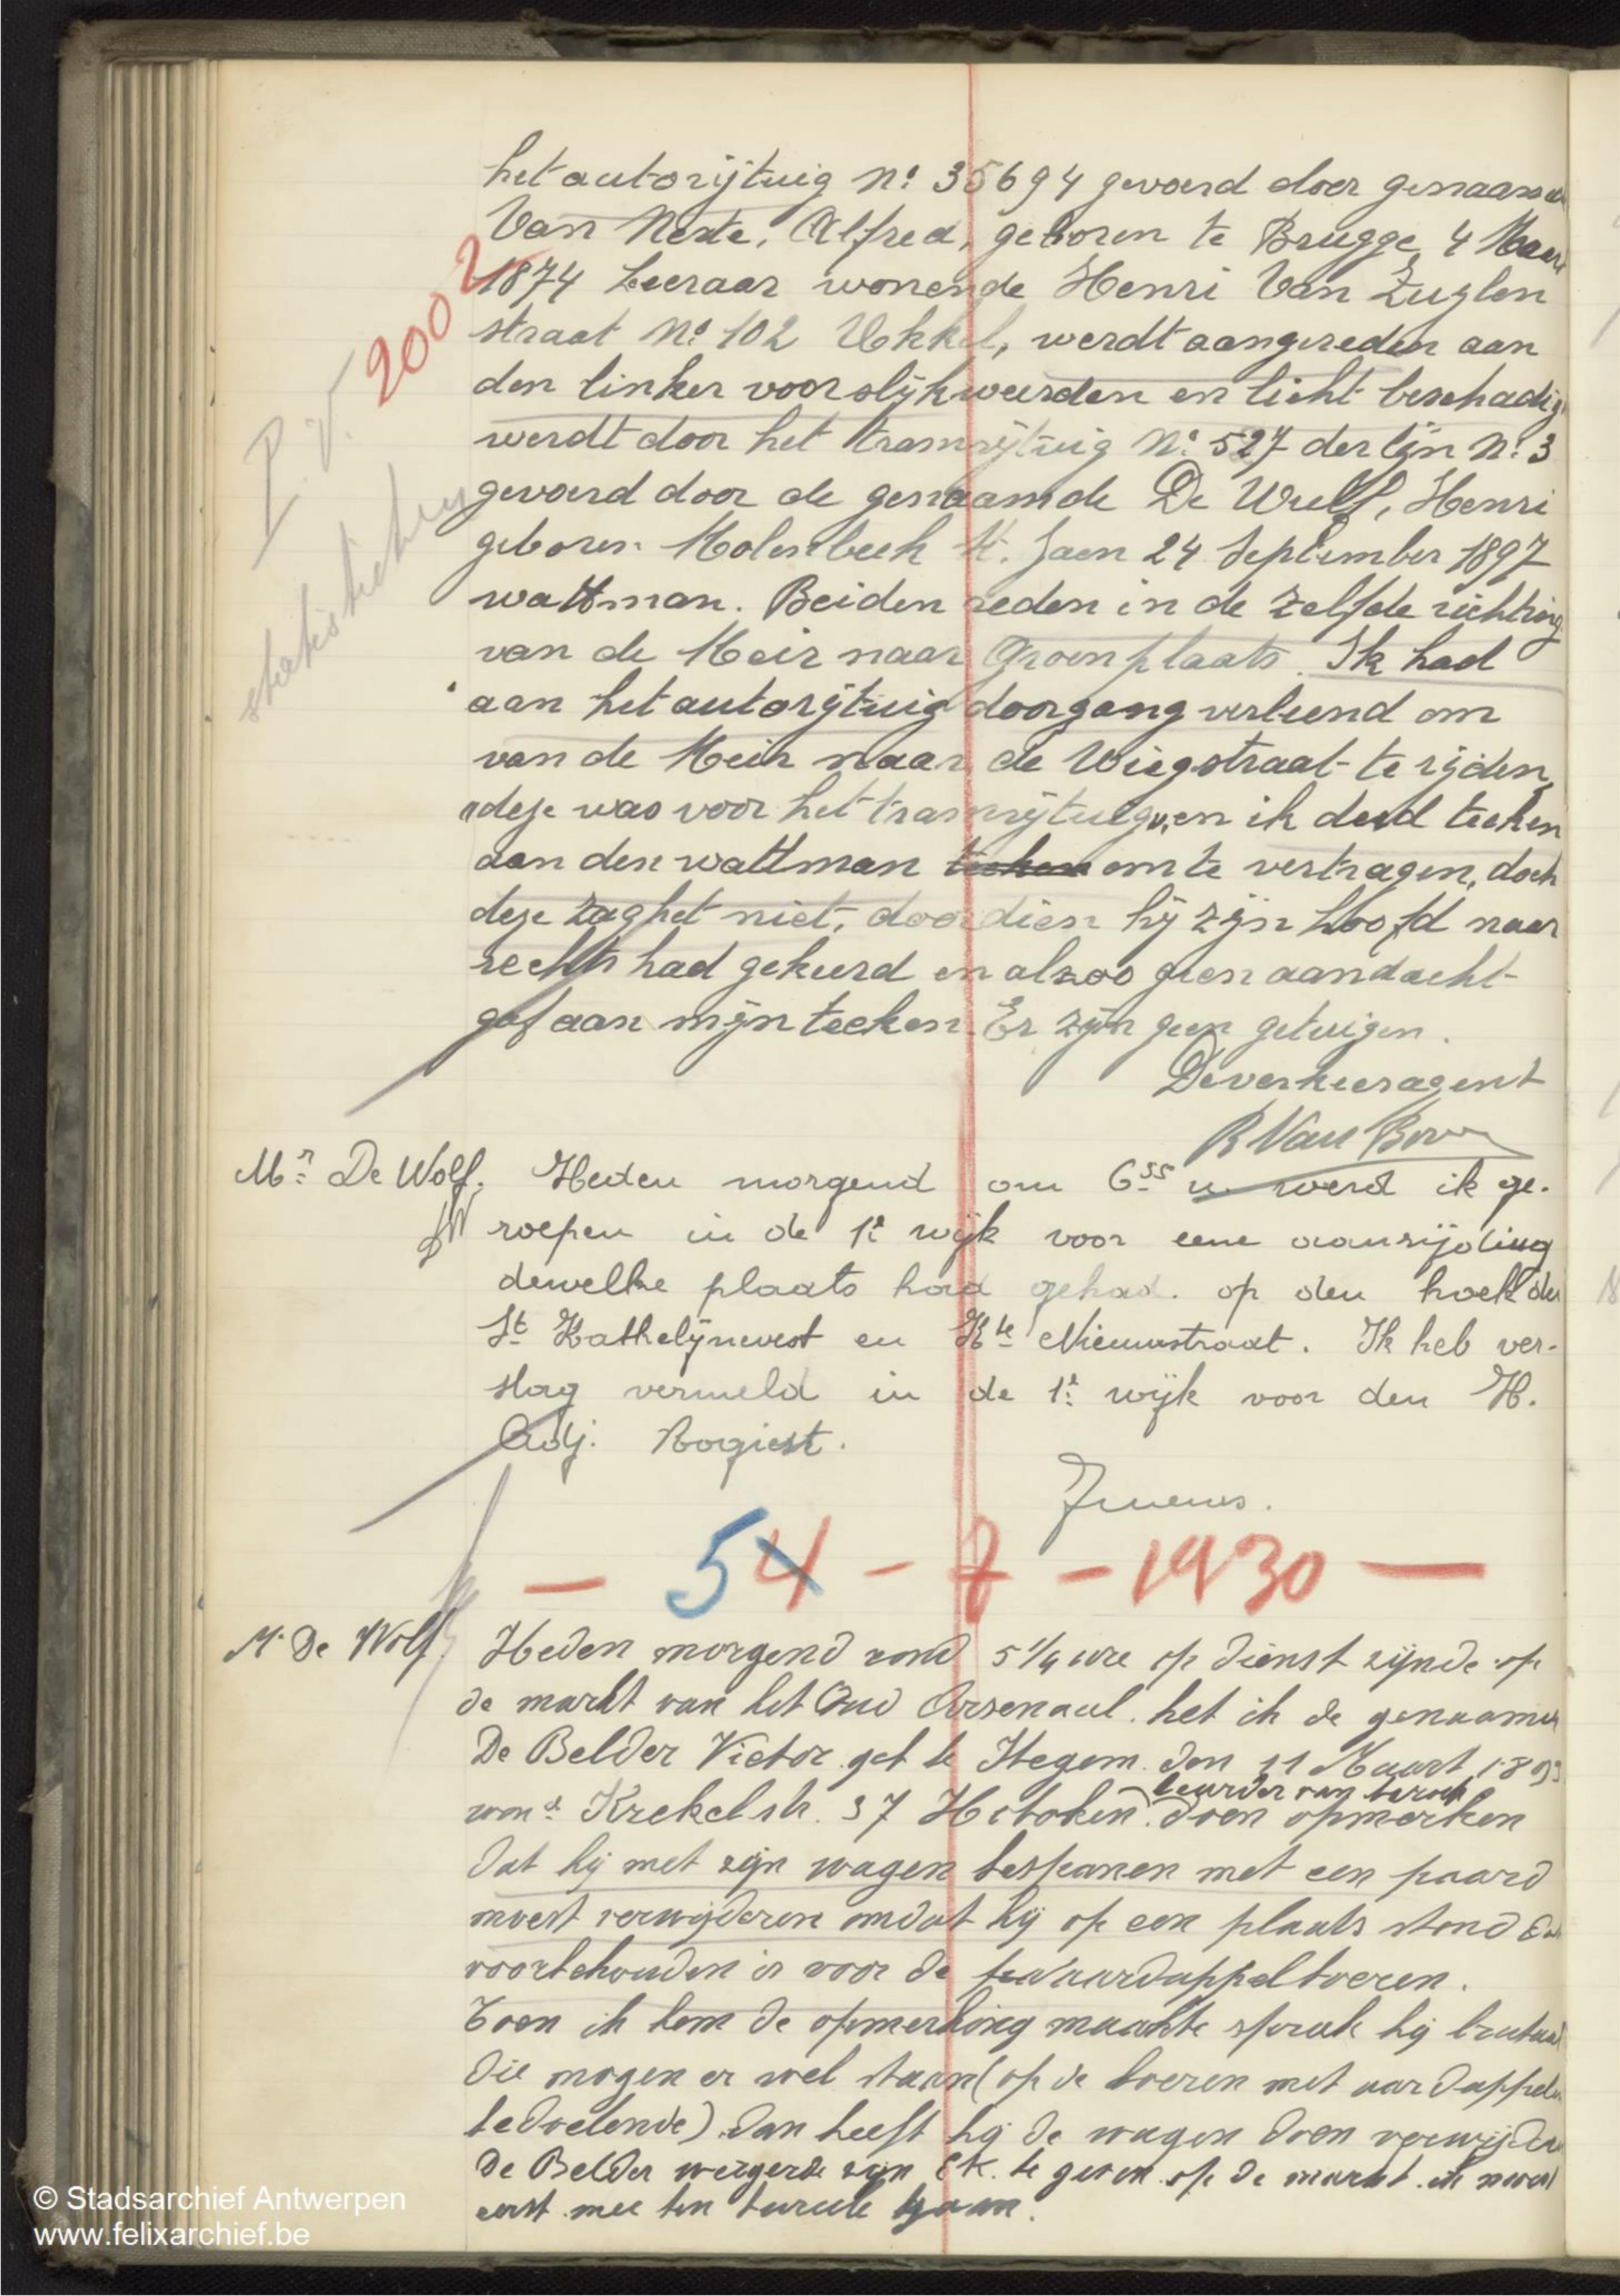 het autorijtuig N° 35694 gevoerd door genaamde
Van Neste, Alfred, geboren te Brugge 4 Maart
1874 Leeraar wonende Henri Van Zuylen
straat N° 102 Ukkel, werdt aangereden aan
den linker voorslijkweerden en licht beschadig
werdt door het tramrijtuig N° 527 der lijn N° 3
gevoerd door de genaamde De Wulf, Henri
geboren Molenbeek St. Jaen 24 September 1897
wattman. Beiden reden in de zelfde richting
van de Meir naar Groenplaats. Ik had
aan het autorijtuig doorgang verleend om
van de Meir naar de Wiegstraat te rijden,
deze was voor het tramrijtuig, en ik deed teeken
aan den wattman teeken om te vertragen, doch
deze zag het niet, doordien hij zijn hoofd naar
rechts had gekeerd en alzoo geen aandacht
gaf aan mijn teeken. Er zijn geen getuigen.
De verkeersagent
R Van
P.V. 2002
statistiek
Mr De Wolf.
Heden morgend om 6 55 u. werd ik ge-
roepen in de 1e wijk voor eene aanrijding
dewelke plaats had gehad op den hoek der
St Kathelijnevest en Kte Nieuwstraat. Ik heb ver-
slag vermeld in de 1e wijk voor den H.
Adj. Rogiest.
— 54 - 7 - 1930 —
M. De Wolf.
Heden morgend rond 5 1/4 ure op dienst zijnde op
de markt van het Oud Arsenaal. het ik de genaamde
De Belder Victor geb te Itegem den 11 Maart 189
won. Krekelstr. 37 Hoboken. leurder van beroep doen opmerken
dat hij met zijn wagen bespannen met een paard
moest verwijderen omdat hij op een plaats stond
voorbehouden is voor de aardappelboeren.
Toen ik hem de opmerking maakte sprak hij brutaal
die mogen er wel staan (op de boeren met aardappelen
bedoelende). Dan heeft hij de wagen doen verwijderen
De Belder weigerde zijn Ek. te geven op de markt. ik moest
eerst mee ten bureele gaan.
© Stadsarchief Antwerpen
www.felixarchief.be